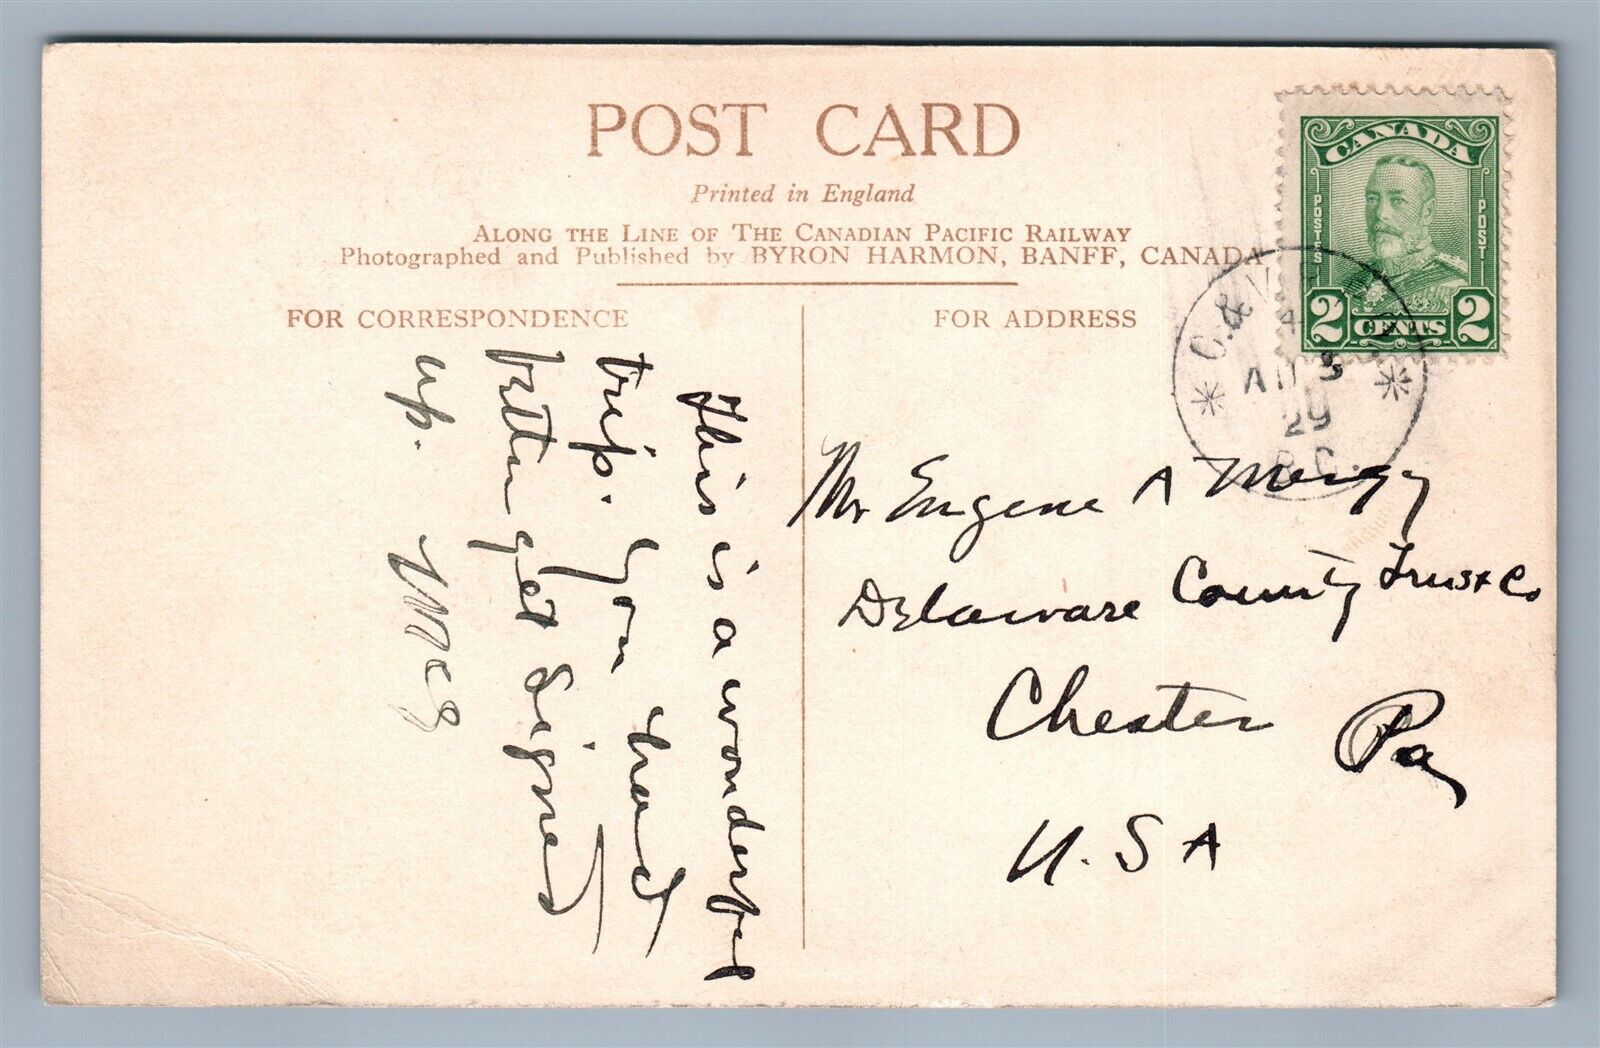 POST CARD
Printed in England
ALONG THE LINE OF THE CANADIAN PACIFIC RAILWAY
Photographed and Published by BYRON HARMON, BANFF, CANADA
FOR CORRESPONDENCE
FOR ADDRESS
CANADA
POSTES
POST
2 CENTS 2
C. & V.
AU 3
29
B.C.
This is a wonderful
trip. You had
better get signed
up. Meg
Mr Eugene A
Delaware County Trust Co
Chester Pa
U.S A